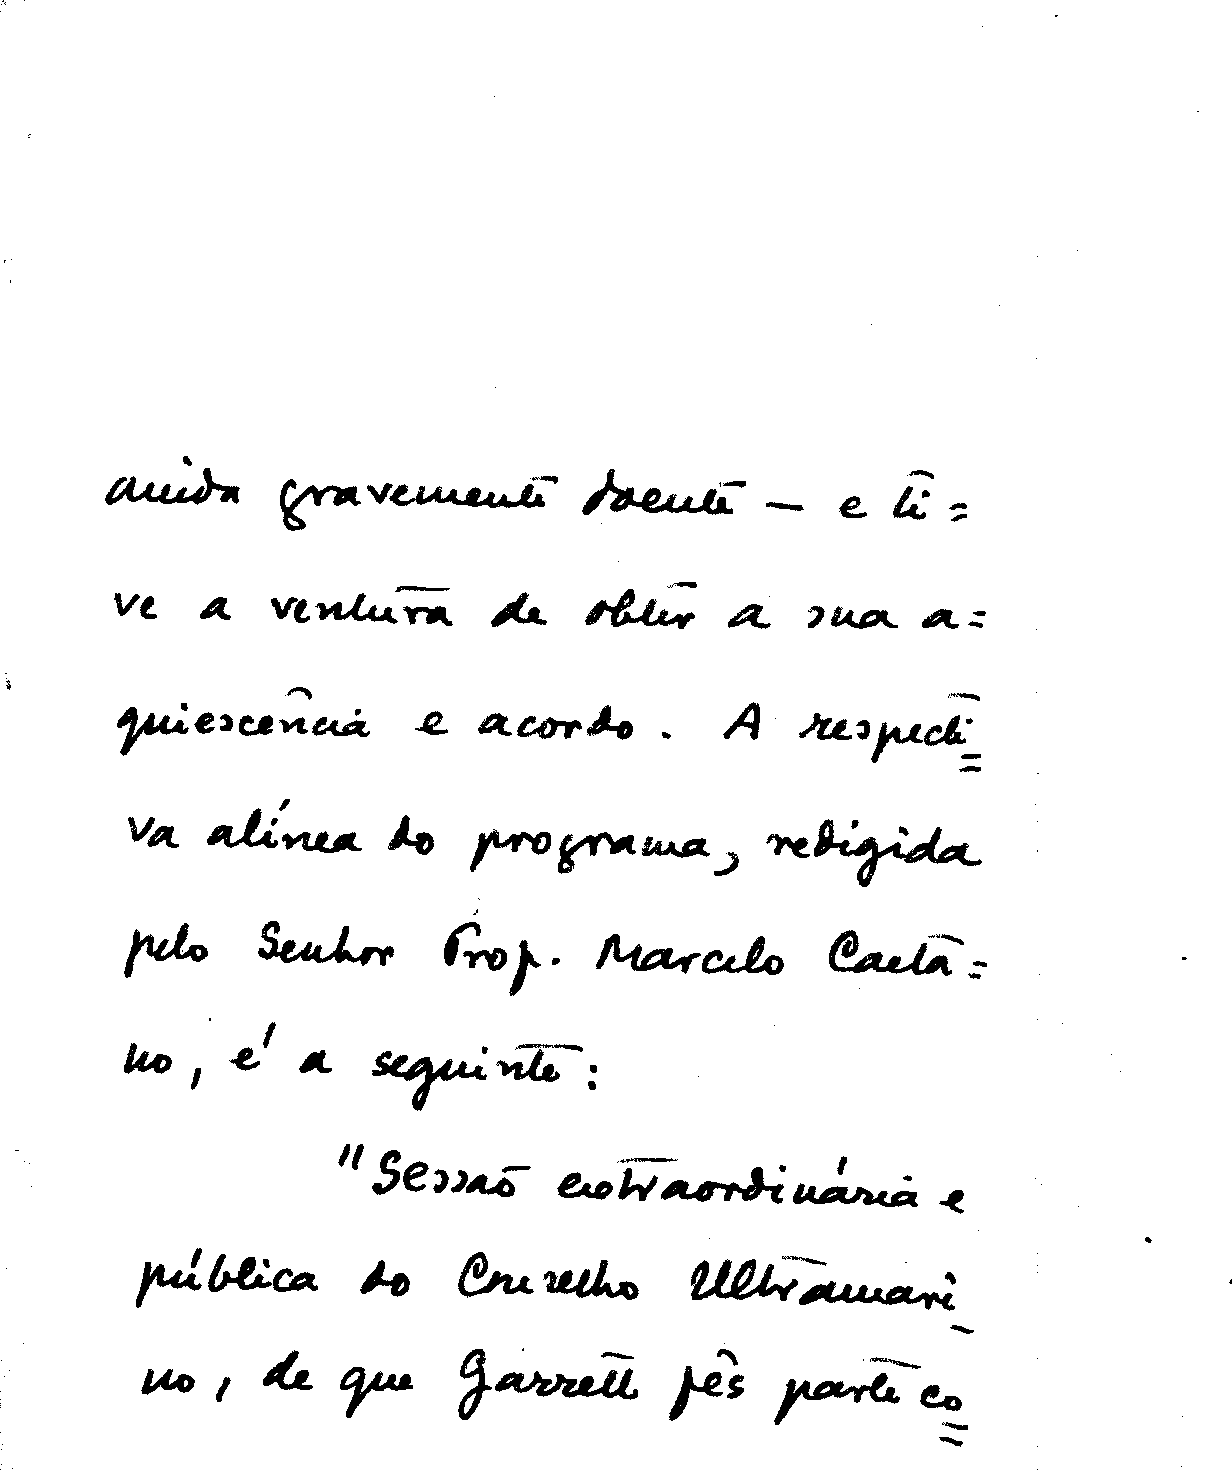 ainda gravemente doente — e ti=
ve a ventura de obter a sua a=
quiescência e acordo. A respecti=
va alínea do programa, redigida
pelo Senhor Prof. Marcelo Caeta=
no, é a seguinte:
"Sessão extraordinária e
pública do Conselho Ultramari-
no, de que Garrett fês parte co=